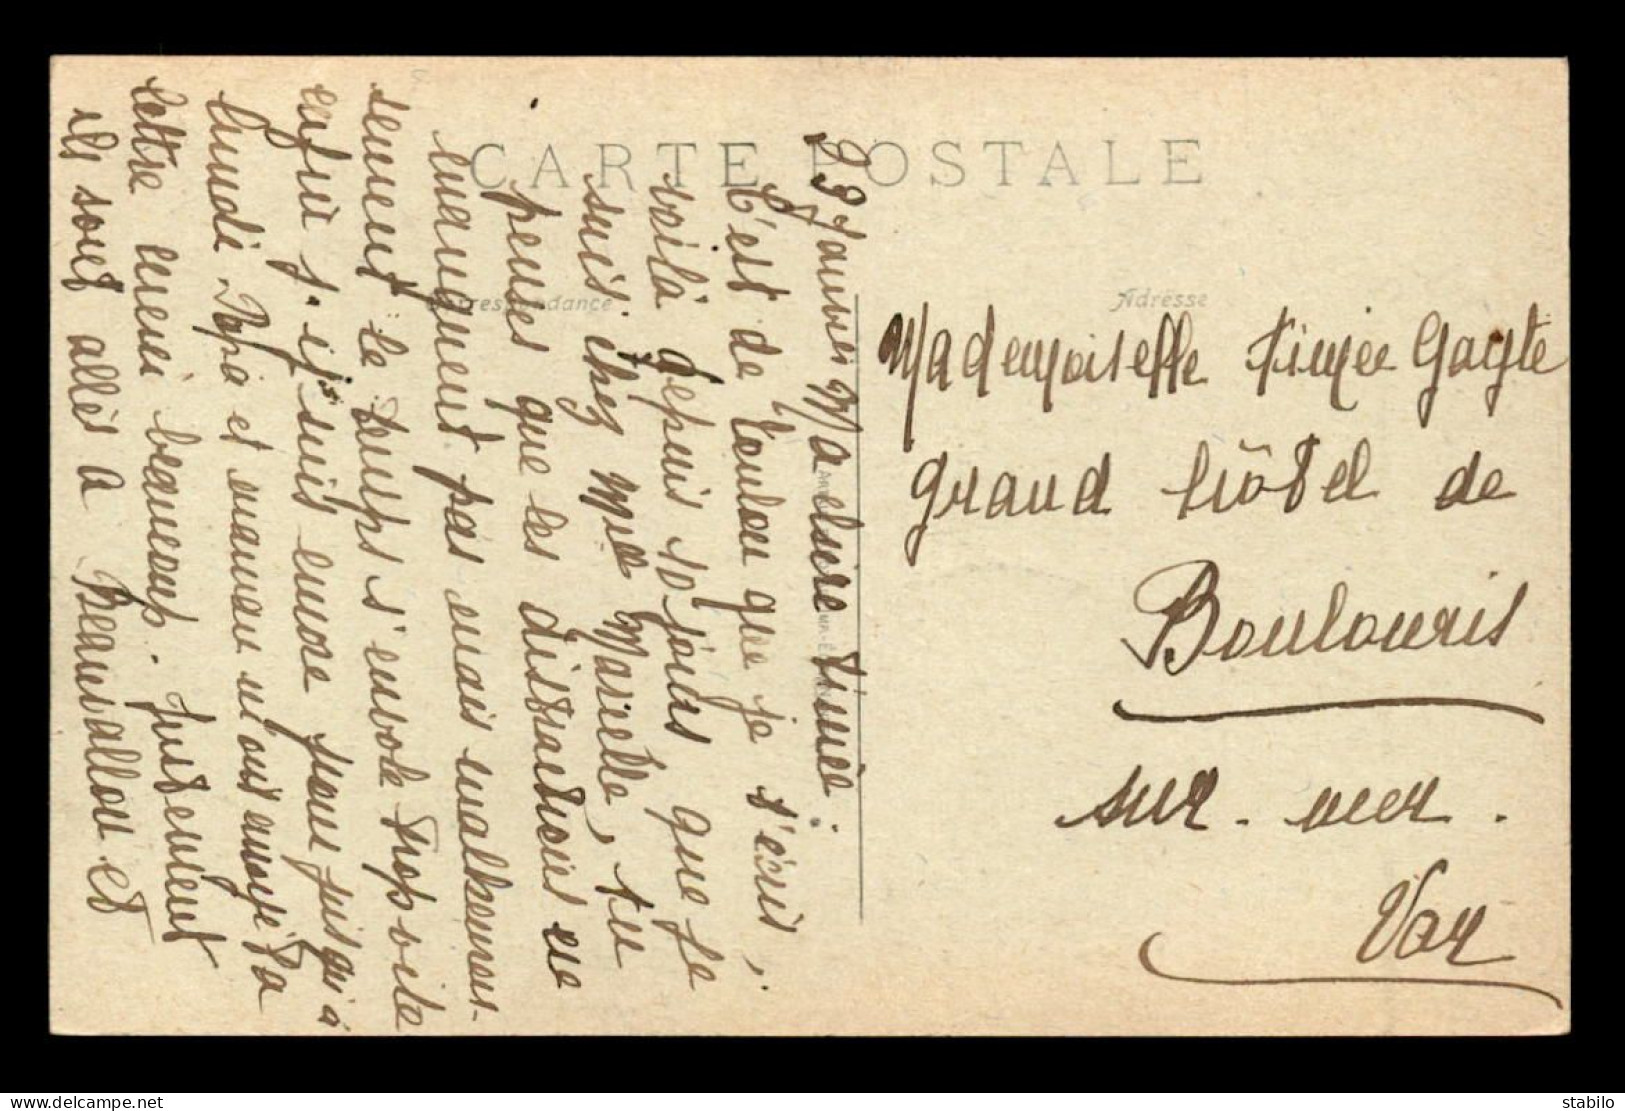 CARTE POSTALE
Correspondance
Adresse
23 Janvier Ma chère Aimée
C'est de Toulon que je t'écris,
voilà depuis 10 jours que je
suis chez Mme Marielle, tu
penses que les distractions ne
manquent pas mais malheureu-
sement le temps s'envole trop vite
enfin j'y suis encore pour jusqu'à
lundi. Papa et maman m'ont envoyé ta
lettre merci beaucoup. Justement
ils sont allés à Beauvallon et
Mademoiselle Aimée
Grand hôtel de
Boulouris
sur-mer.
Var
delcampe.net
stabilo